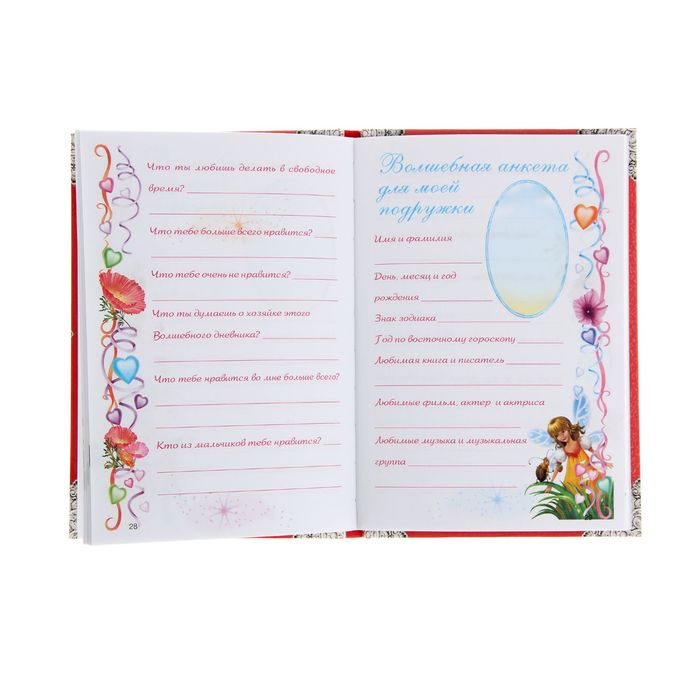 Что ты любишь делать в свободное
время?
Что тебе больше всего нравится?
Что тебе очень не нравится?
Что ты думаешь о хозяйке этого
Волшебного дневника?
Что тебе нравится во мне больше всего?
Кто из мальчиков тебе нравится?
28
Волшебная анкета
для моей
подружки
Имя и фамилия
День, месяц и год
рождения
Знак зодиака
Год по восточному гороскопу
Любимая книга и писатель
Любимые фильм, актер и актриса
Любимые музыка и музыкальная
группа